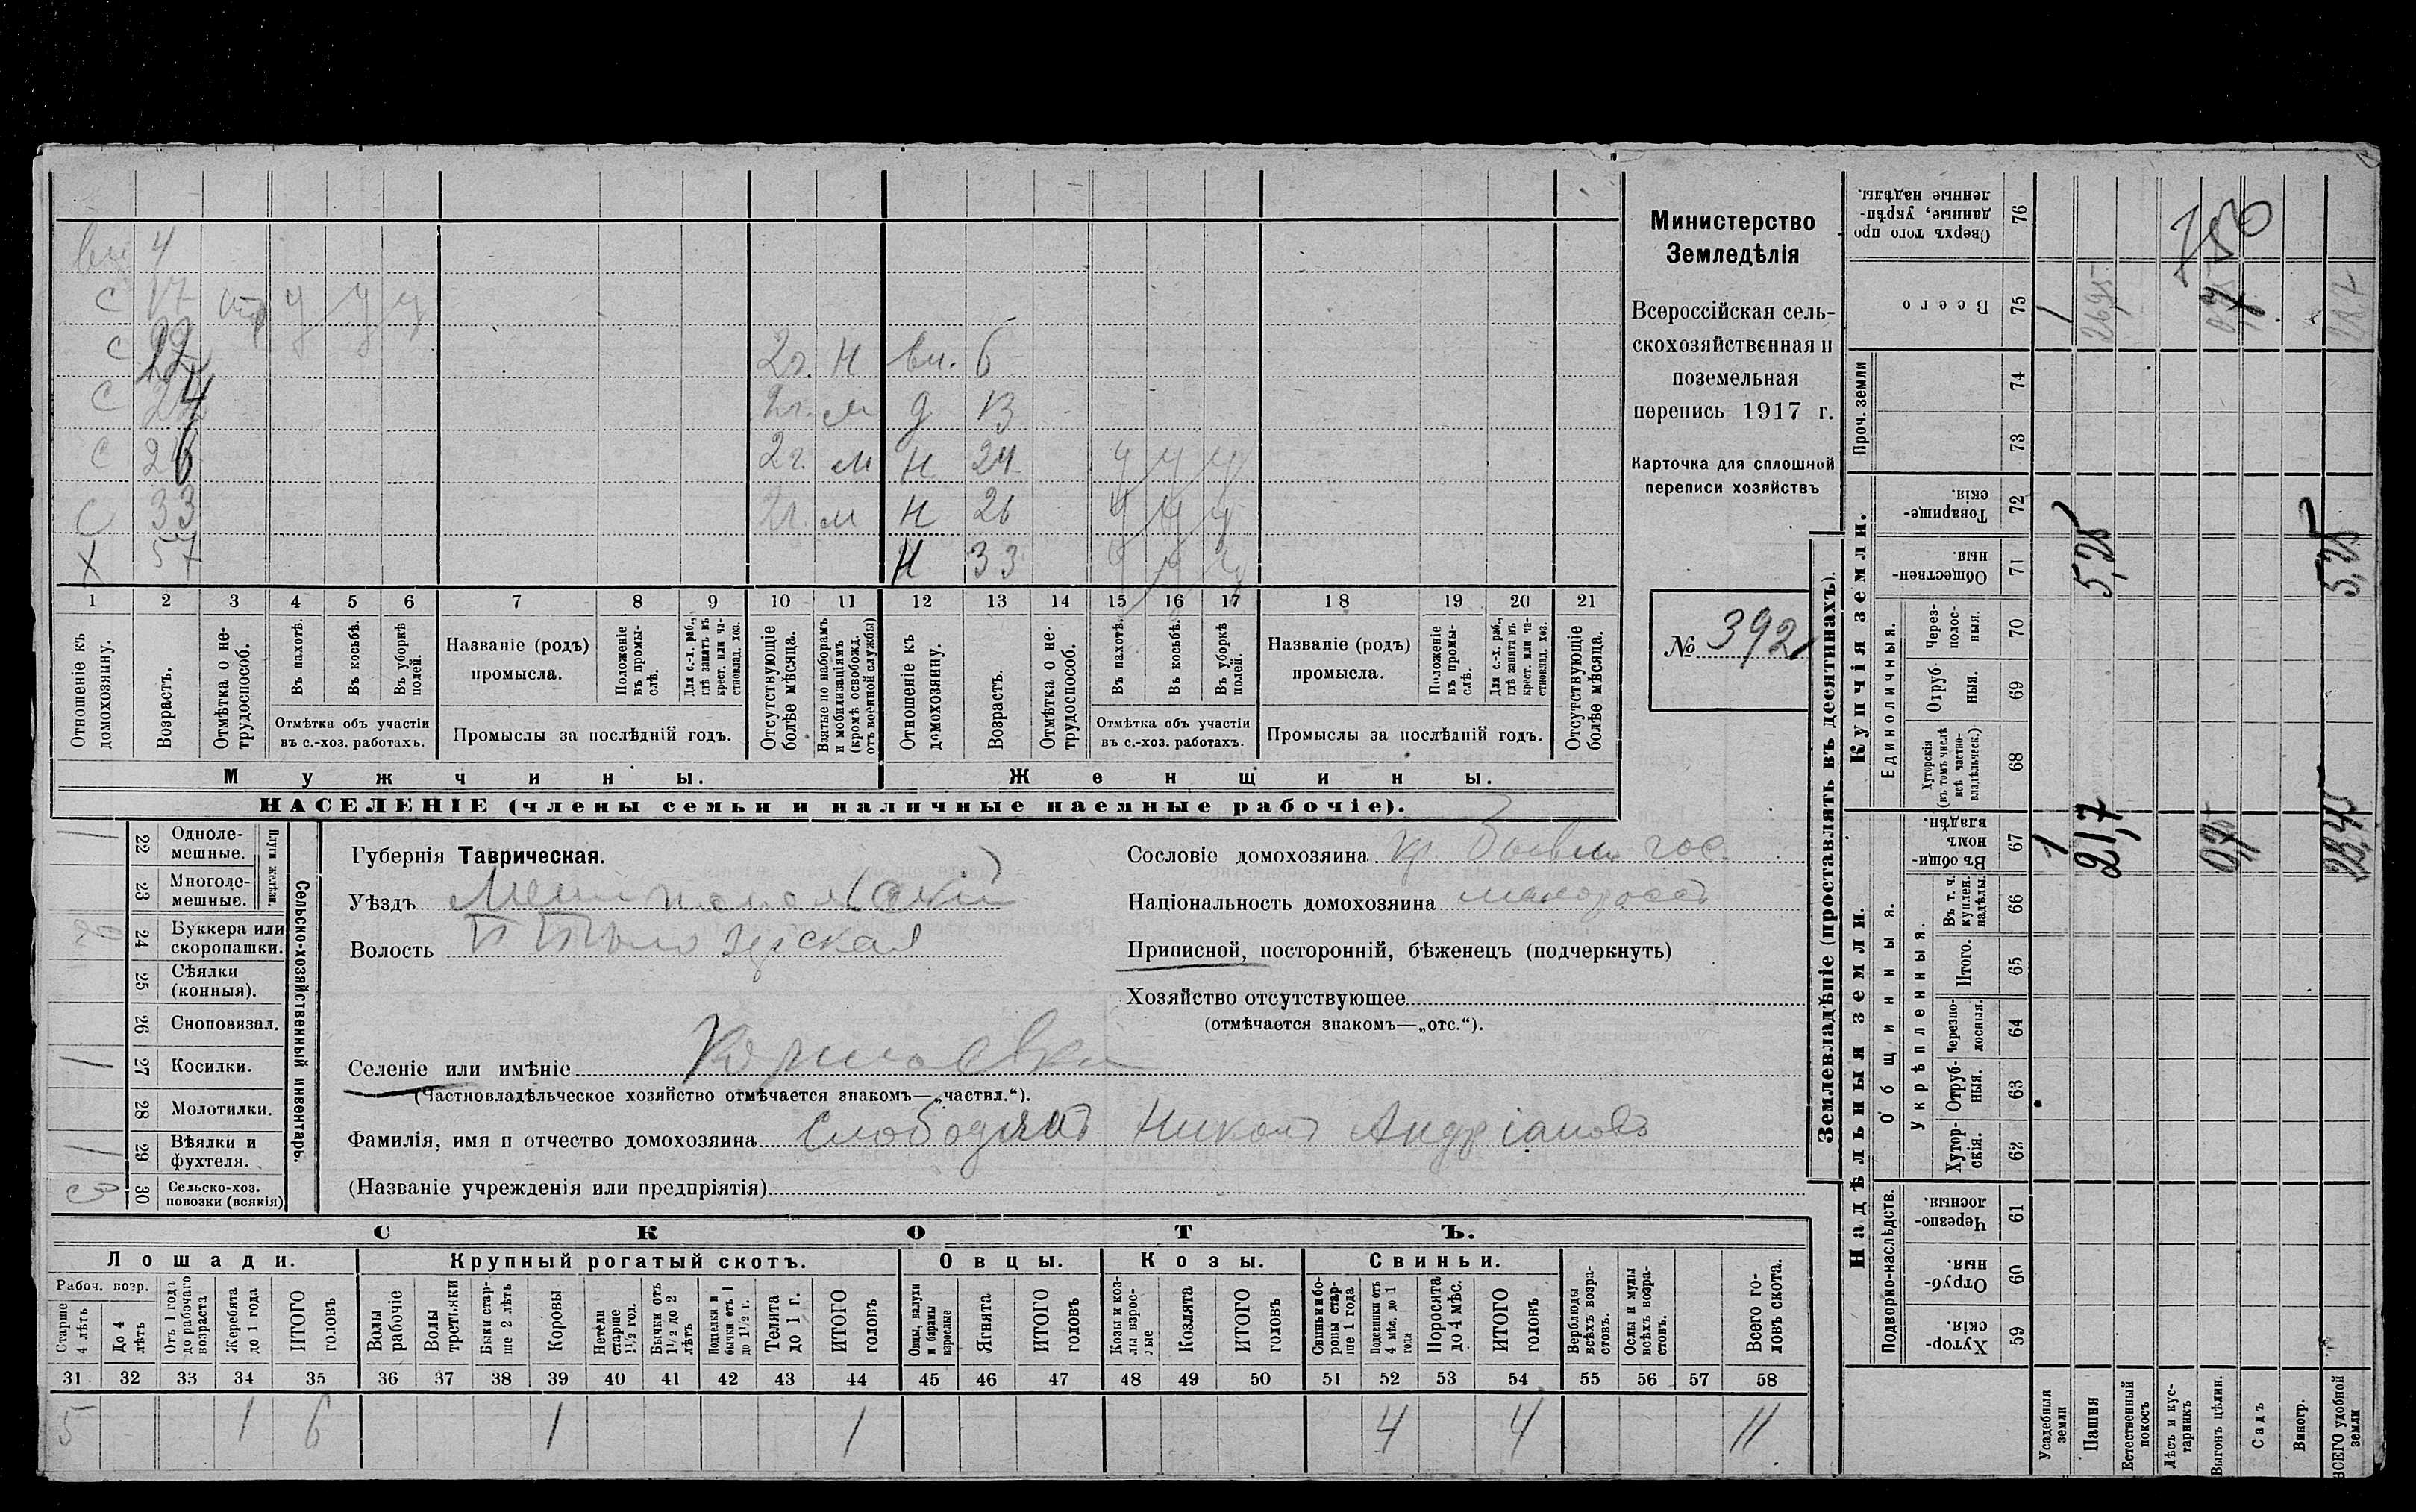 вн 4
с 17 у у у
с 22 2г. н вн. 6
с 24 2г. м д 13
с 26 2г. м н 24 у у у
с 33 2г. м н 26 у у у
х 57 н 33 у у у
1 2 3 4 5 6 7 8 9 10 11 12 13 14 15 16 17 18 19 20 21
Отношеніе къ домохозяину.
Возрастъ.
Отмѣтка о не-
трудоспособ.
Въ пахотѣ.
Въ косьбѣ.
Въ уборкѣ
полей.
Отмѣтка объ участіи
въ с.-хоз. работахъ.
Названіе (родъ)
промысла.
Положеніе
въ промы-
слѣ.
Для с.-х. раб.,
гдѣ занятъ въ
крест. или ча-
стновлад. хоз.
Промыслы за послѣдній годъ.
Отсутствующіе
болѣе мѣсяца.
Взятые по наборамъ
и мобилизаціямъ
(кромѣ освобожд.
отъ военной службы)
Отношеніе къ
домохозяину.
Возрастъ.
Отмѣтка о не-
трудоспособ.
Въ пахотѣ.
Въ косьбѣ.
Въ уборкѣ
полей.
Отмѣтка объ участіи
въ с.-хоз. работахъ.
Названіе (родъ)
промысла.
Положеніе
въ промы-
слѣ.
Для с.-х. раб.,
гдѣ занята въ
крест. или ча-
стновлад. хоз.
Промыслы за послѣдній годъ.
Отсутствующіе
болѣе мѣсяца.
Мужчины.
Женщины.
НАСЕЛЕНІЕ (члены семьи и наличные наемные рабочіе).
Министерство
Земледѣлія
Всероссійская сель-
скохозяйственная и
поземельная
перепись 1917 г.
Карточка для сплошной
переписи хозяйствъ
№ 392
1 22 Одноле-
мешные.
23 Многоле-
мешные.
Плуги желѣзн.
24 Буккера или
скоропашки.
25 Сѣялки
(конныя).
26 Сноповязал.
1 27 Косилки.
28 Молотилки.
1 29 Вѣялки и
фухтеля.
3 30 Сельско-хоз.
повозки (всякія)
Сельско-хозяйственный инвентарь.
Губернія Таврическая.
Уѣздъ Мелитопольскій
Волость
Селеніе или имѣніе
(Частновладѣльческое хозяйство отмѣчается знакомъ—„частвл.“).
Фамилія, имя и отчество домохозяина Слободянъ Никонъ Андріановъ
(Названіе учрежденія или предпріятія)
Сословіе домохозяина кр. бывш гос.
Національность домохозяина малороссъ
Приписной, посторонній, бѣженецъ (подчеркнуть)
Хозяйство отсутствующее
(отмѣчается знакомъ—„отс.“).
СКОТЪ.
Лошади. Крупный рогатый скотъ. Овцы. Козы. Свиньи.
Рабоч. возр.
Старше
4 лѣтъ
До 4
лѣтъ
Отъ 1 года
до рабочаго
возраста
Жеребята
до 1 года
ИТОГО
головъ
Волы
рабочіе
Волы
третьяки
Быки стар-
ше 2 лѣтъ
Коровы
Нетели
старше
1½ год.
Бычки отъ
1½ до 2
лѣтъ
Подтелки и
бычки отъ 1
до 1½ г.
Телята
до 1 г.
ИТОГО
головъ
Овцы, валухи
и бараны
взрослые
Ягнята
ИТОГО
головъ
Козы и коз-
лы взрос-
лые
Козлята
ИТОГО
головъ
Свиньи и бо-
ровы стар-
ше 1 года
Подсвинки отъ
4 мѣс. до 1
года
Поросята
до 4 мѣс.
ИТОГО
головъ
Верблюды
всѣхъ возра-
стовъ.
Ослы и мулы
всѣхъ возра-
стовъ.
Всего го-
ловъ скота.
31 32 33 34 35 36 37 38 39 40 41 42 43 44 45 46 47 48 49 50 51 52 53 54 55 56 57 58
5 1 6 1 1 4 4 11
Землевладѣніе (проставлять въ десятинахъ).
Надѣльныя земли.
Купчія земли.
Проч. земли
Подворно-наслѣдств.
Общинныя.
Укрѣпленныя.
Единоличныя.
Хутор-
скія. 59
Отруб-
ныя. 60
Черезпо-
лосныя. 61
Хутор-
скія. 62
Отруб-
ныя. 63
Черезпо-
лосныя. 64
Итого. 65
Въ т. ч.
куплен.
надѣлы. 66
Въ общин-
номъ
владѣн. 67
Хуторскія
(въ томъ числѣ
всѣ частно-
владѣльческ.) 68
Отруб-
ныя. 69
Через-
полос-
ныя. 70
Обществен-
ныя. 71
Товарище-
скія. 72
73
74
Всего 75
Сверхъ того про-
данные, укрѣп-
ленные надѣлы. 76
Усадебныя
земли 1 1
Пашня 21,7 5,25 26,95
Естественный
покосъ
Лѣсъ и кус-
тарникъ
Выгонъ цѣлин. 0,75
Садъ
Виногр.
ВСЕГО удобной
земли 23,45 5,25